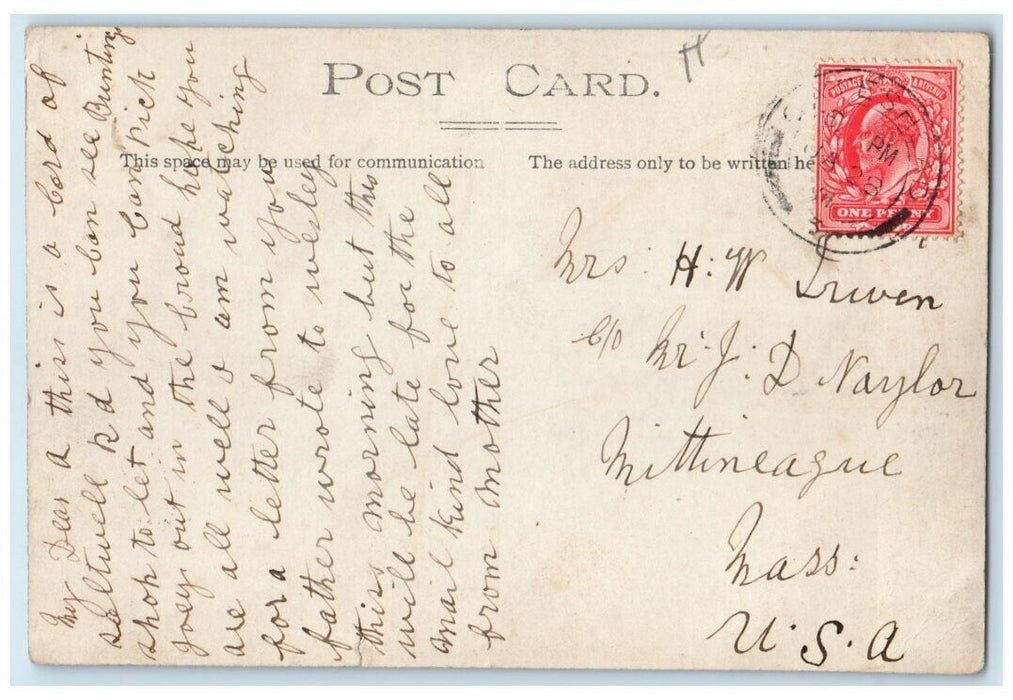 POST CARD.
This space may be used for communication
The address only to be written he
POSTAGE & REVENUE
ONE PENNY
PM
My Dear a this is a Card of
saltwell rd you Can see Bunting
shop to let and you Can Pick
Joey out in the Croud hope you
are all well & am watching
for a letter from you
father wrote to wesley
this morning but this
will be late for the
mail Kind love to all
from Mother
Mrs. H. W Irwen
c/o Mr. J. D Naylor
Mittineague
Mass:
U.S.A